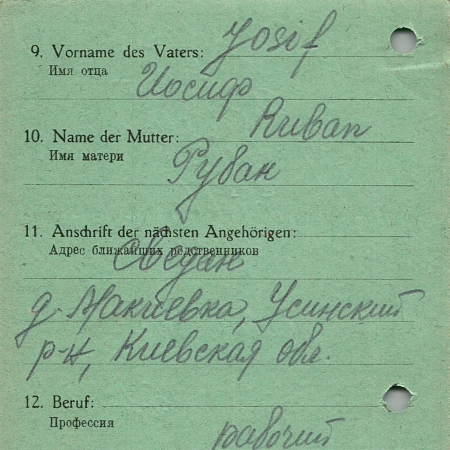 9. Vorname des Vaters: Josif
Имя отца
Иосиф
Ruban
10. Name der Mutter:
Имя матери
Рубан
11. Anschrift der nächsten Angehörigen:
Адрес ближайших родственников
д. Макиевка,
р-н, Киевская обл.
12. Beruf:
Профессия
рабочий